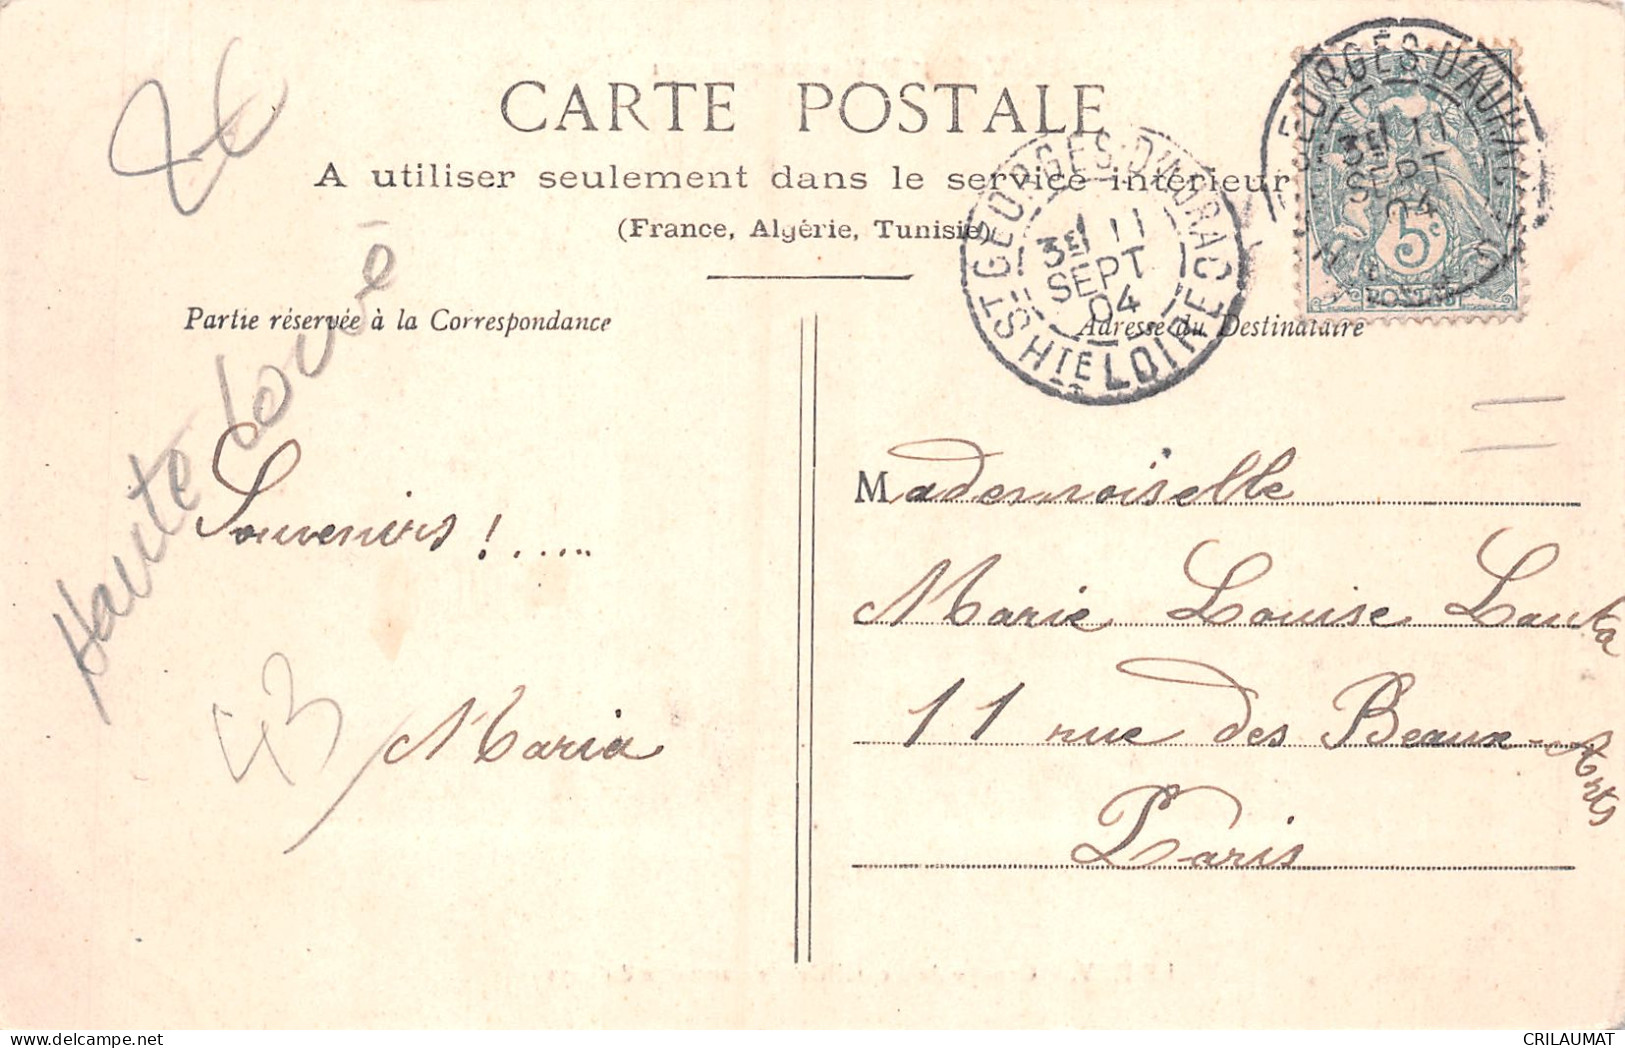 CARTE POSTALE
A utiliser seulement dans le service intérieur
(France, Algérie, Tunisie)
Partie réservée à la Correspondance
Adresse du Destinataire
ST GEORGES-D'AURAC
3E 11
SEPT
04
HTE LOIRE
GEORGES-D'AURAC
3E 11
SEPT
04
5c
POSTES
2€
Haute Loire
43
Souvenirs !.....
Maria
Mademoiselle
Marie Louise
11 rue des Beaux-Arts
Paris
11
CRILAUMAT